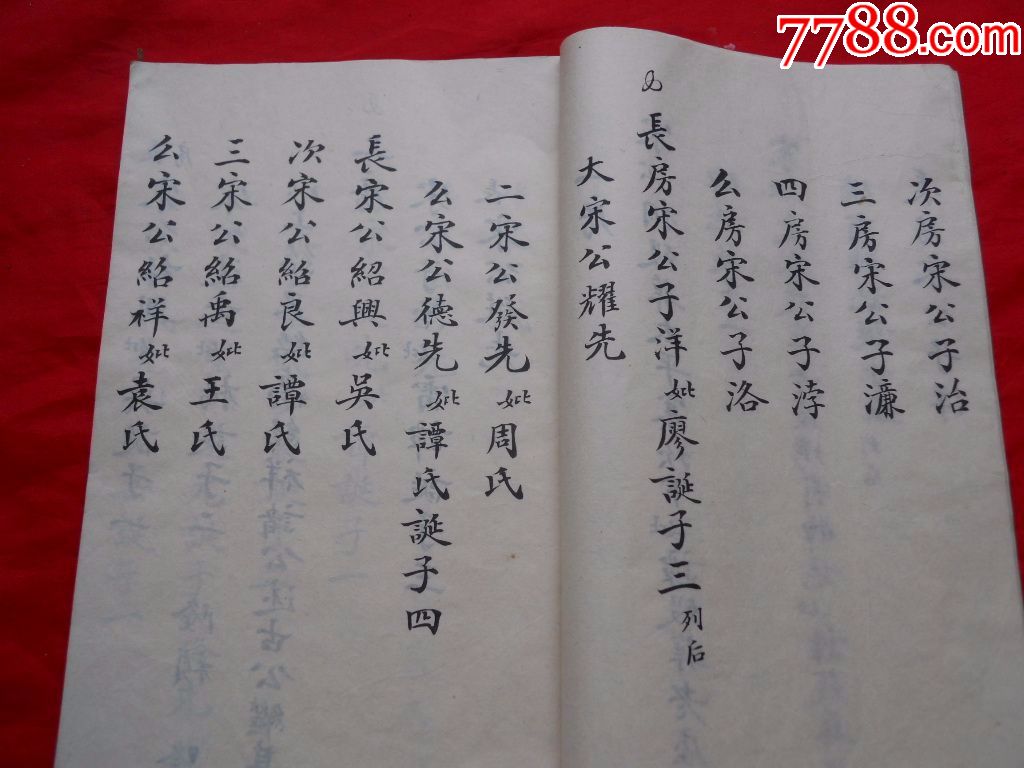 7788.com
次房宋公子治
三房宋公子濂
四房宋公子浡
么房宋公子洛
長房宋公子洋妣廖誕子三列后
大宋公耀先
二宋公發先妣周氏
么宋公德先妣譚氏誕子四
長宋公紹興妣吳氏
次宋公紹良妣譚氏
三宋公紹禹妣王氏
么宋公紹祥妣袁氏